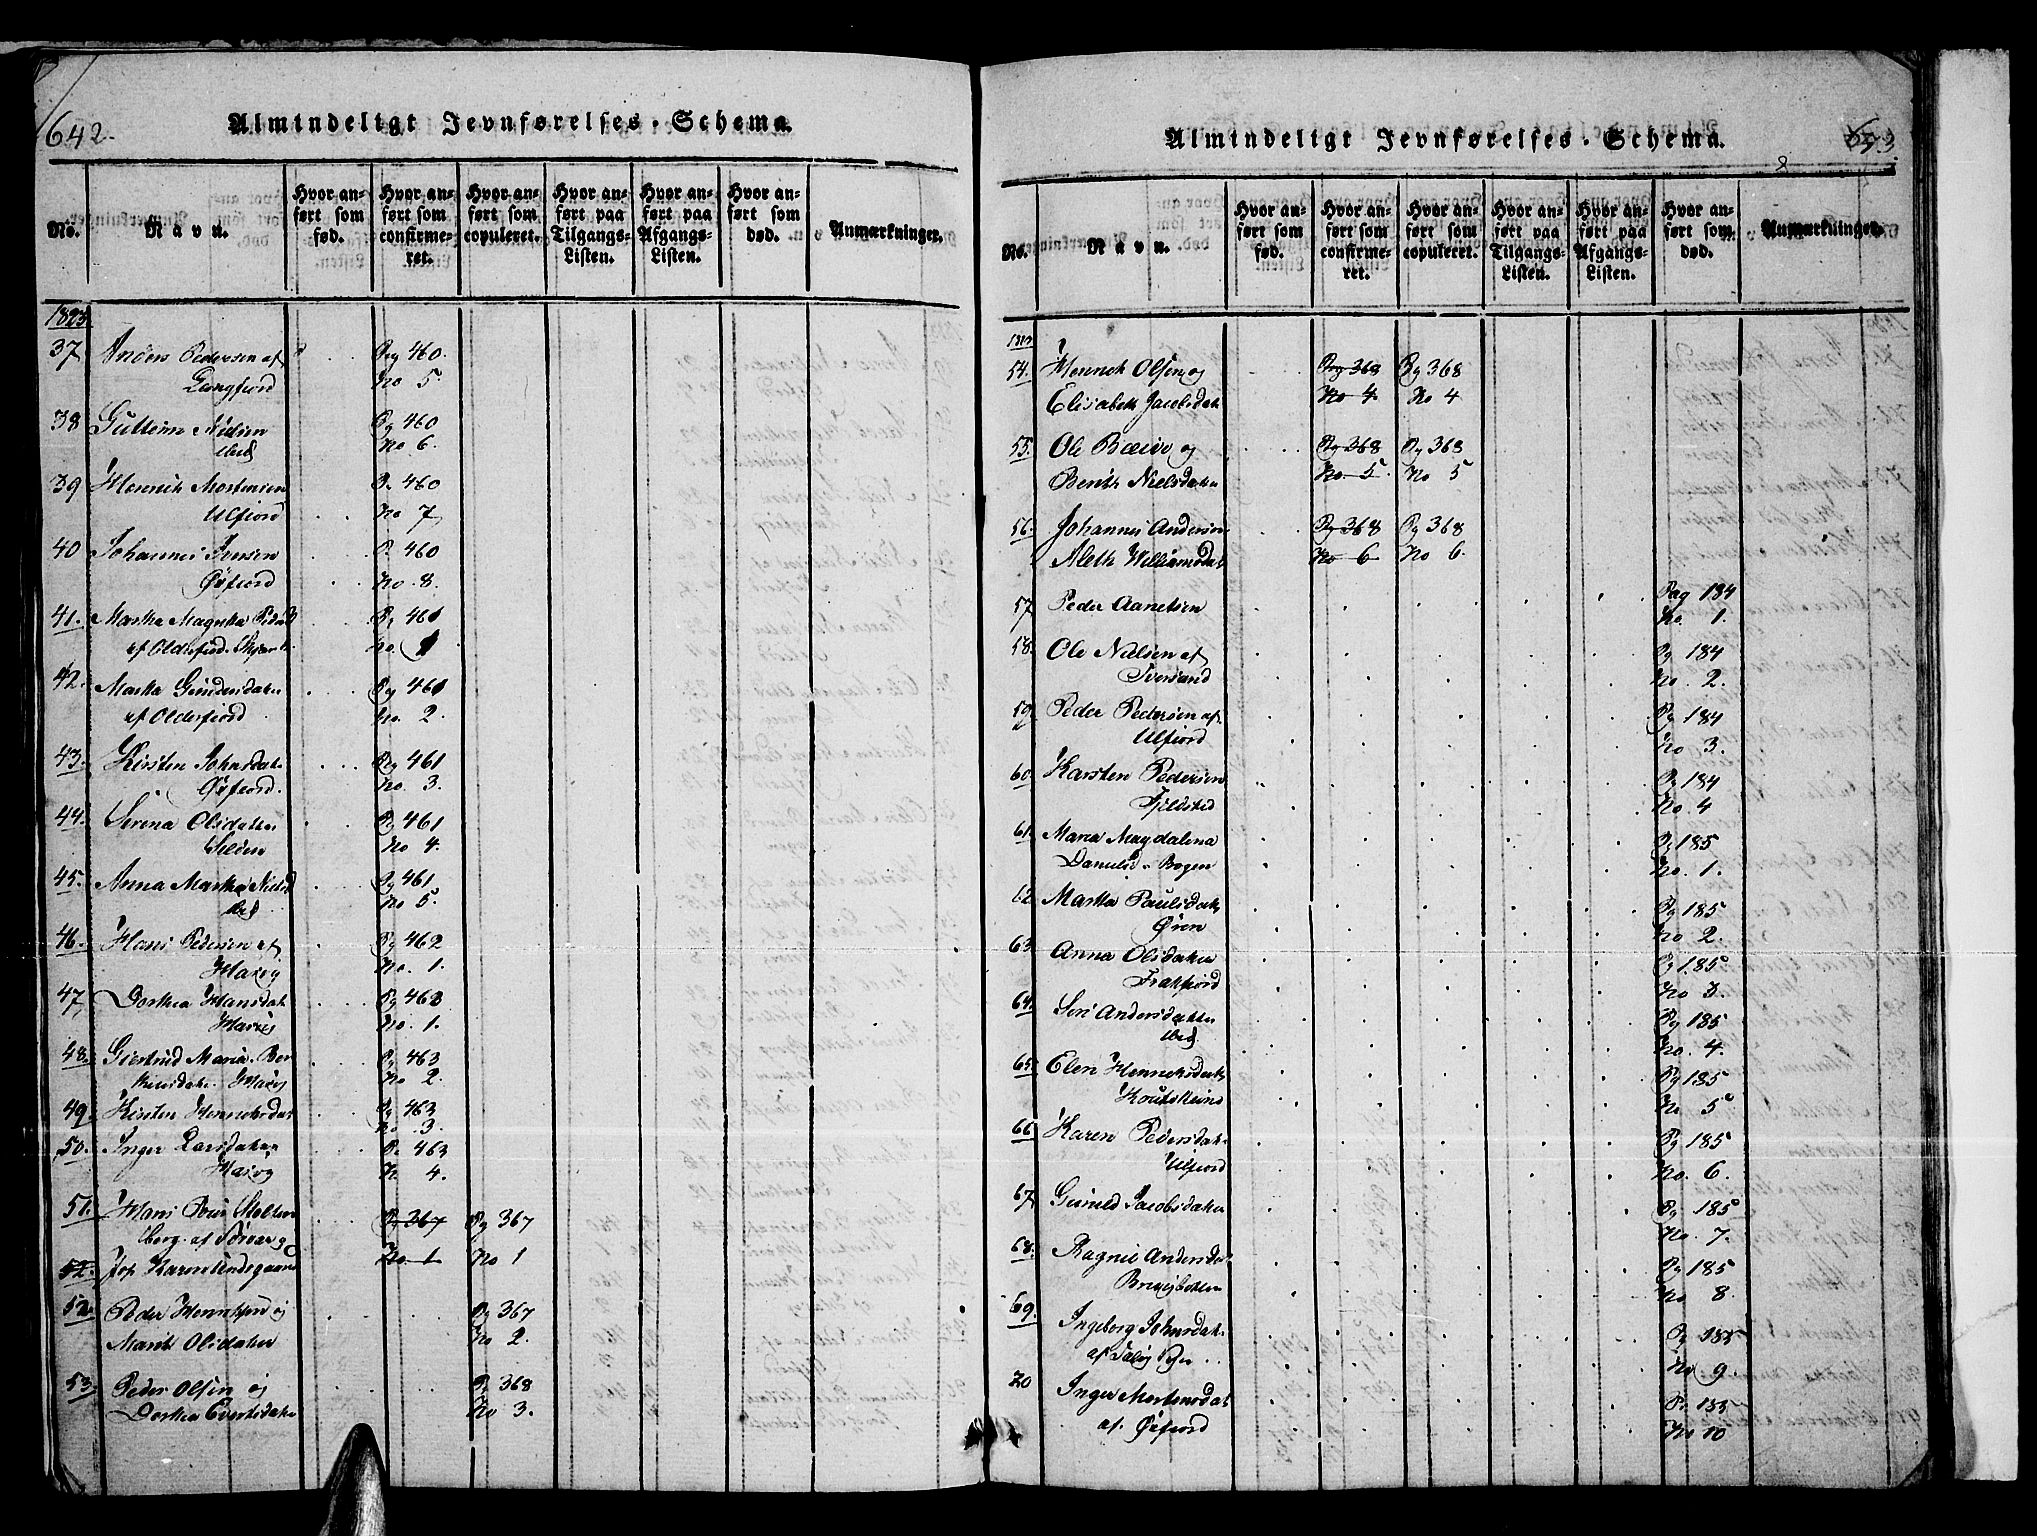 642.
Almindeligt Jevnførelses-Schema.
No.
Navn.
Hvor anført som fød.
Hvor anført som confirmeret.
Hvor anført som copuleret.
Hvor anført paa Tilgangs-Listen.
Hvor anført paa Afgangs-Listen.
Hvor anført som død.
Anmærkninger.
1823
37 Anders Pedersen af Pag 460.
Langfiord No 5.
38 Guttorm Nielsen Pg 460
Ibid No 6.
39 Henrich Mortensen P. 460
Ulfiord No 7
40 Johannes Jensen P. 460
Øxfiord No. 8.
41. Martha Magreta Peders Pg 461
af Olderfiord No. 1
42. Martha Gundersdatter Pg 461
af Olderfiord No. 2.
43. Kirsten Johnsdatr Pg 461
Øxfiord. No. 3.
44. Serena Olsdatter Pg 461
Selden No 4.
45. Anna Martha Nielsd Pg 461
Ibid No 5.
46. Hans Pedersen af Pg 462
Masøy No. 1.
47 Dorthea Hansdatr Pg 463
Masøy No. 1.
48. Giertrud Maria Ber Pg 463
Masøy No 2.
49. Kirsten Henrichsdatr Pg 463
No. 3.
50. Inger Larsdatter P. 463
Masøy N. 4.
51. Hans Pg 367 Pg 367
berg. af No 1 No 1
52. Jfr Karen
52. Peder Henrichsen og Pg 367
Marit Olsdatter No 2.
53. Peder Olsen og P. 368
Dorthea Evertsdatter No 3.
643.
Almindeligt Jevnførelses-Schema.
No.
Navn.
Hvor anført som fød.
Hvor anført som confirmeret.
Hvor anført som copuleret.
Hvor anført paa Tilgangs-Listen.
Hvor anført paa Afgangs-Listen.
Hvor anført som død.
Anmærkninger.
54. Henrich Olsen og Pag 368 Pg 368
Elisabeth Jacobsdatr No 4. No 4
55. Ole Bæivi og Pg 368 Pg 368
Berith Nielsdatter No. 5. No 5
56. Johannes Andersen Pg 368 Pg 368
Aleth Williamsdatr No 6 No 6.
57 Peder Aanetsen Pag 184
No. 1.
58. Ole Nielsen af Pg 184
No. 2.
59. Peder Pedersen af Pg 184
Ulfiord No 3.
60. Karsten Pedersen Pg 184
No. 4
61. Maria Magdalena Pg 185
Daniels. Bogen No. 1.
62. Martha Paulsdatr Pg 185
Øren No 2.
63. Anna Olsdatter Pg 185
Trætfiord No 3.
64. Siri Andersdatter Pg 185
Ibid No. 4.
65. Elen Henrichsdatr Pg 185
Koutokeino No 5
66. Karen Pedersdatr Pg 185
Ulfiord No. 6.
67 Gunild Jacobsdatter Pg 185
No. 7.
68. Ragnil Andersdatr Pg 185
No 8.
69. Ingeborg Johnsdatr Pg 185
No 9.
70 Inger Mortensdatr P. 185
af. Øxfiord No 10